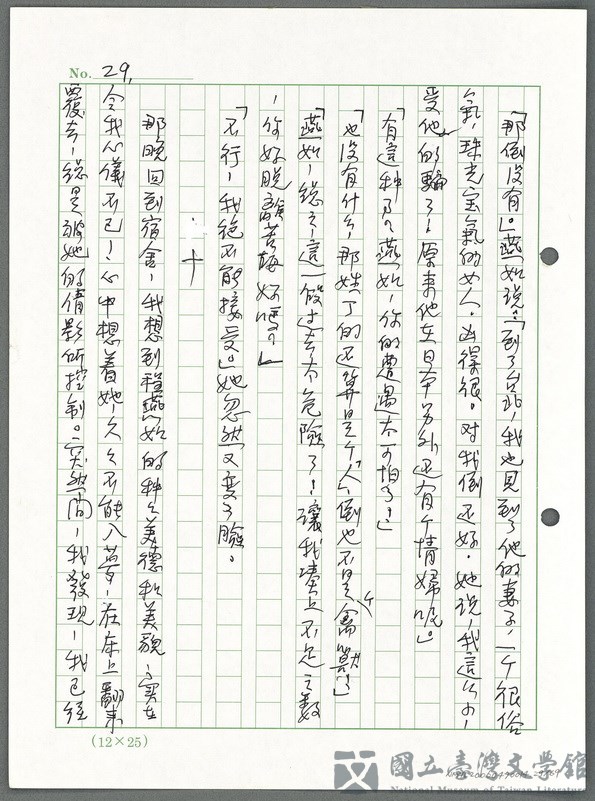 No. 29,
「那倒没有。」燕如説:「到了台北,我也見到了他的妻子,一个很俗
氣,珠光宝氣的女人。凶得很。对我倒还好。她説,我這么小,
受他的騙了!原来他在日本另外还有个情婦呢。」
「有這种事?燕如,你的遭遇太可怕了!」
「也没有什么,那姓丁的不算是个人,倒也不是个禽獸!」
「燕如,總之,這一段过去太危險了!讓我填上不足之數
,你好脱離苦海好嗎?」
「不行,我绝不能接受。」她忽然又变了臉。
十
那晚回到宿舍,我想到程燕如的种々美德和美貌,实在
令我心儀不已!心中想着她,久久不能入夢,在床上翻来
覆去,總是被她的倩影所控制。突然间,我發現,我已经
(12×25)
國立臺灣文學館
National Museum of Taiwan Literature